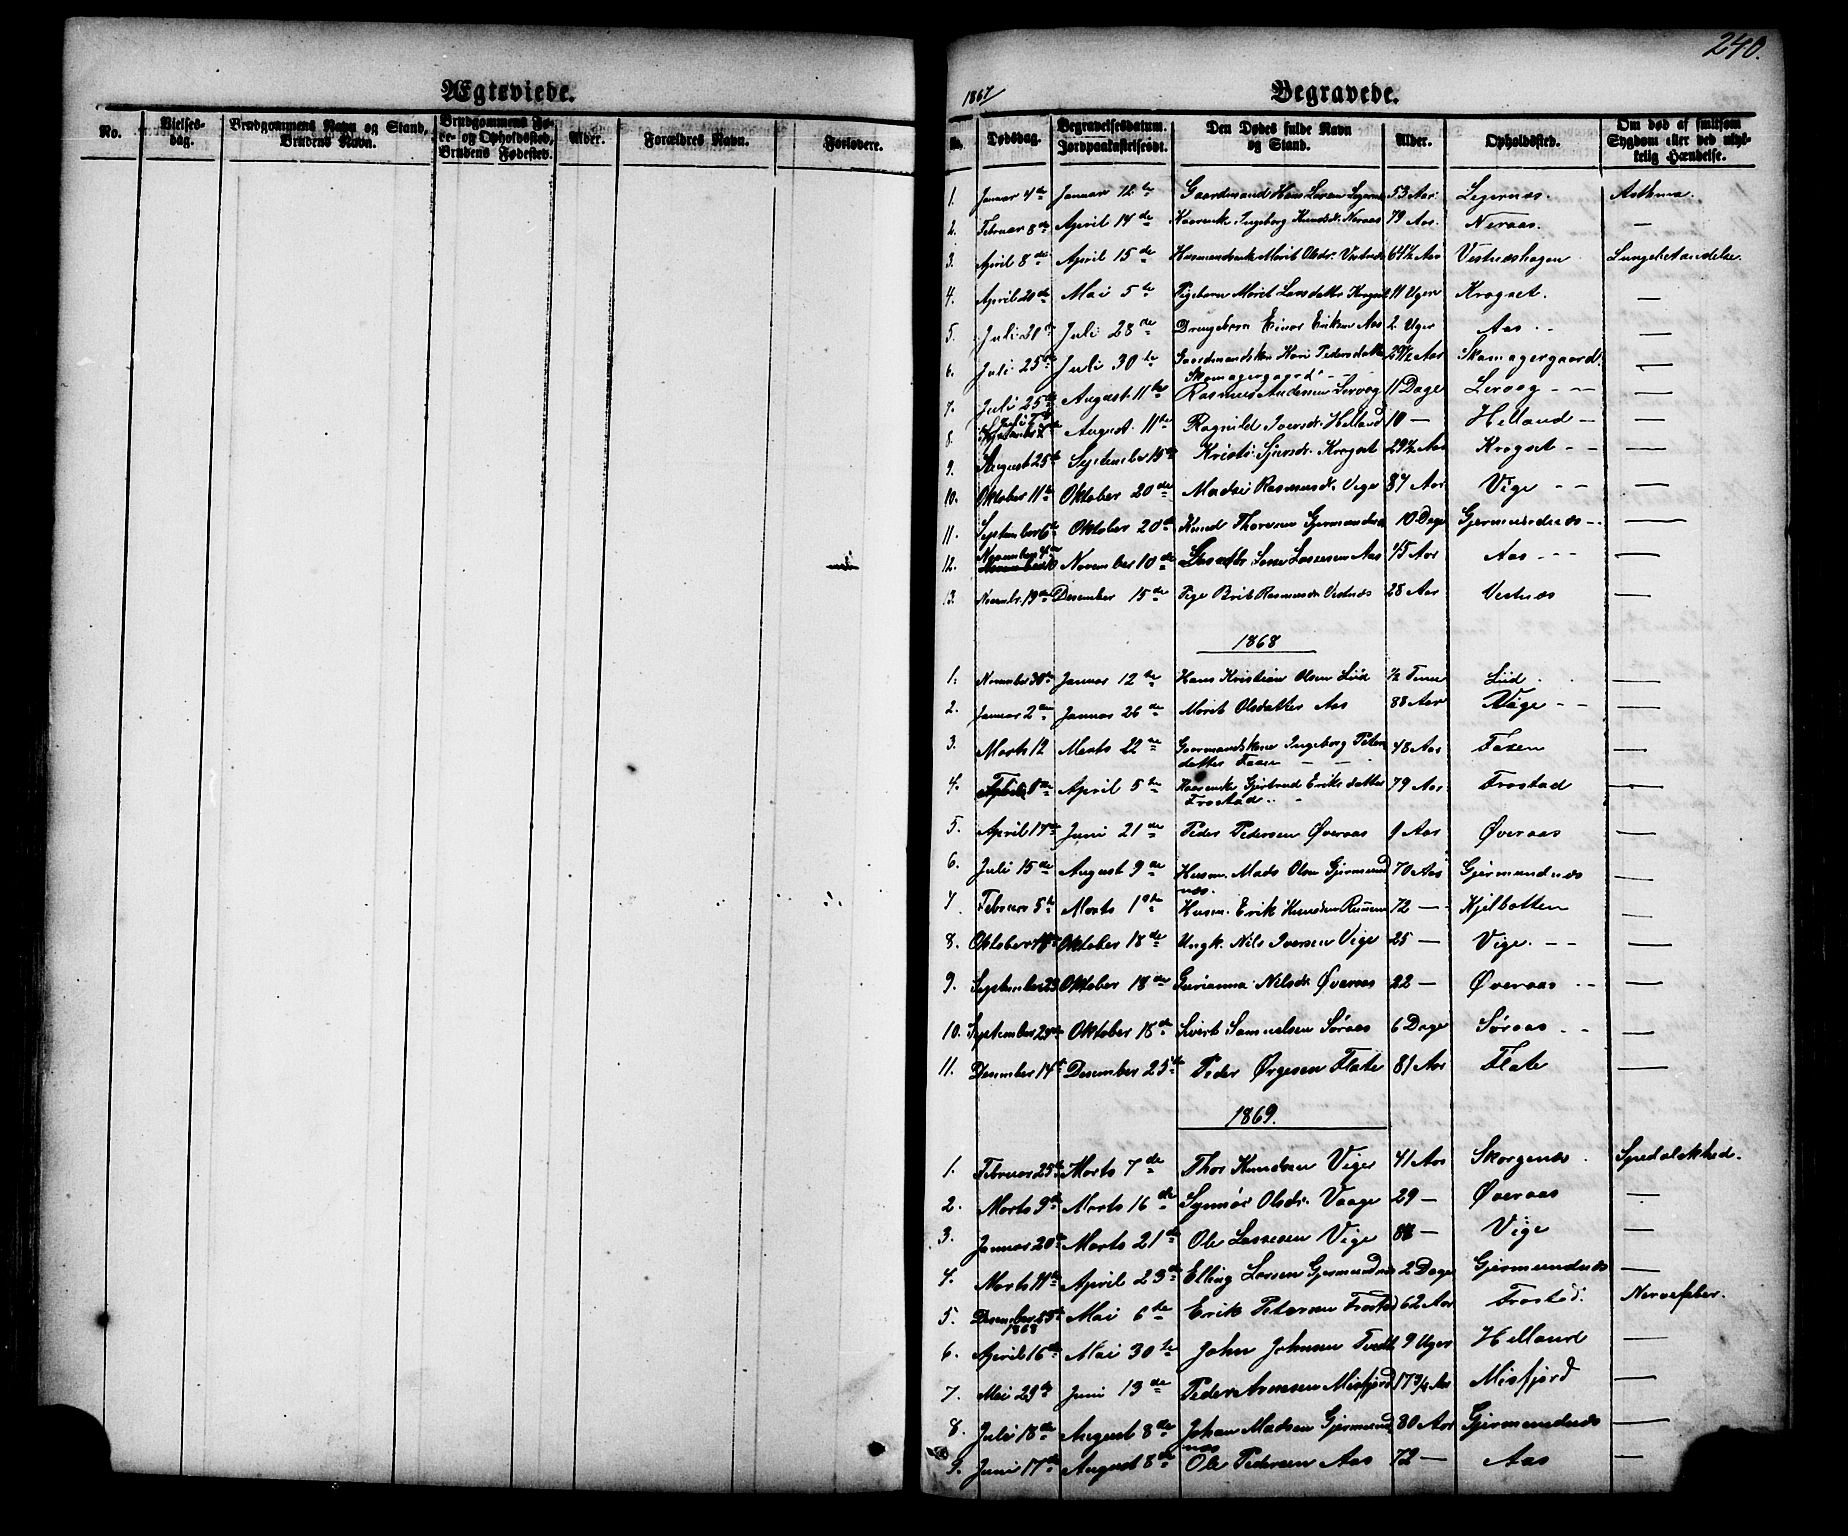 240.
Ægteviede.
No.
Vielses-
dag.
Brudgommens Navn og Stand,
Brudens Navn.
Brudgommens Fø-
de- og Opholdssted,
Brudens Fødested.
Alder.
Forældres Navn.
Forlovere.
1867
Begravede.
No.
Dødsdag.
Begravelsesdatum.
Jordpaakastelsesdt.
Den Dødes fulde Navn
og Stand.
Alder.
Opholdssted.
Om død af smitsom
Sygdom eller ved ulyk-
kelig Hændelse.
1. Januar 4de Januar 12te Gaardmand Hans Larsen 53 Aar Asthma.
2. Februar 8de April 14de Kaarenke Ingeborg Knudsdr. Neraas 79 Aar. Neraas. —
3. April 8de April 15de Husmandsenke Marit Olsdr. Vestnæs 64½ Aar Vestnæshagen Lungebetændelse.
4. April 20de Mai 5te Pigebarn Marit Larsdatter Krogset 11 Uger Krogset. —
5. Juli 20de Juli 28de Drengebarn Einar Eriksen Aas 2 Uger Aas —
6. Juli 25de Juli 30te Gaardmandskon Kari Pedersdatter 29½ Aar Skamagergaard. —
Skomagergaard
7. Juli 25de August 11te Rasmus Andersen Lervaag 11 Dage Lervaag —
8. August 11te Ragnild Iversdr. Helland 10 — Helland —
9. August 25de September 15de Kristi Sjursdr. Krogset 29½ Aar Krogset —
10. Oktober 11te Oktober 20de Madsi Rasmusdr. Vige 87 Aar Vige —
11. September 6te Oktober 20de Knud Thoresen Gjermundnæs 10 Dage Gjermundnæs —
12. November 4de November 10de Lassesen Aas 45 Aar Aas —
13. Novembr. 19de Desember 15de Pige Brit Rasmusdr. Vestnæs 28 Aar Vestnæs —
1868
1. November 30te Januar 12te Hans Kristian Olsen Liid ½ Time Liid —
2. Januar 2de Januar 26de Marit Olsdatter Aas 88 Aar Vige —
3. Marts 12 Marts 22de Gaarmandskone Ingeborg Peters 48 Aar Faxen —
datter Faxen
4. April 5te Kaarenke Gjertrud Eriksdatter 79 Aar Frostad —
Frostad
5. April 17de Juni 21de Peder Pedersen Øveraas 9 Aar Øveraas —
6. Juli 15de August 9de Husm. Mads Olsen Gjermund 70 Aar Gjermundnæs —
næs.
7 Februar 5te Marts 1ste Husm. Erik Knudsen 72 — Kjelbotten —
8. Oktober Oktober 18de Ungk. Nils Iversen Vige 25 — Vige. —
9. September 23 Oktober 18de Gurianna Nilsdr. Øveraas 22 — Øveraas —
10. September 29de Oktober 18de Sivert Samuelsen Søraas 6 Dage Søraas —
11. Desember 14de Desember 25de Peder Ørgesen Flate 81 Aar Flate —
1869.
1. Februar 25de Marts 7de Thor Knudsen Vige 41 Aar Skorgenæs Spedalskhed.
2. Marts 9de Marts 16de Synnør Olsdr. Vaage 29 — Øveraas —
3. Januar 20de Marts 21de Ole Lassesen Vige — Vige —
4. Marts April 23de Elling Larsen Gjermundnæs 2 Dage Gjermundnæs —
5. Desember 25de Mai 6te Erik Petersen Frostad 62 Aar Frostad. Nervefeber.
1868
6. April 16de Mai 30te John Johnsen Tvedt 9 Uger Helland —
7. Mai 29de Juni 13de Peder Arnesen Misfjord 17¾ Aar Misfjord —
8. Juli 18de August 8de Johan Madsen Gjermund 80 Aar Gjermundnæs —
næs
9. Juni 17de August 8de Ole Pedersen Aas 72 — Aas —